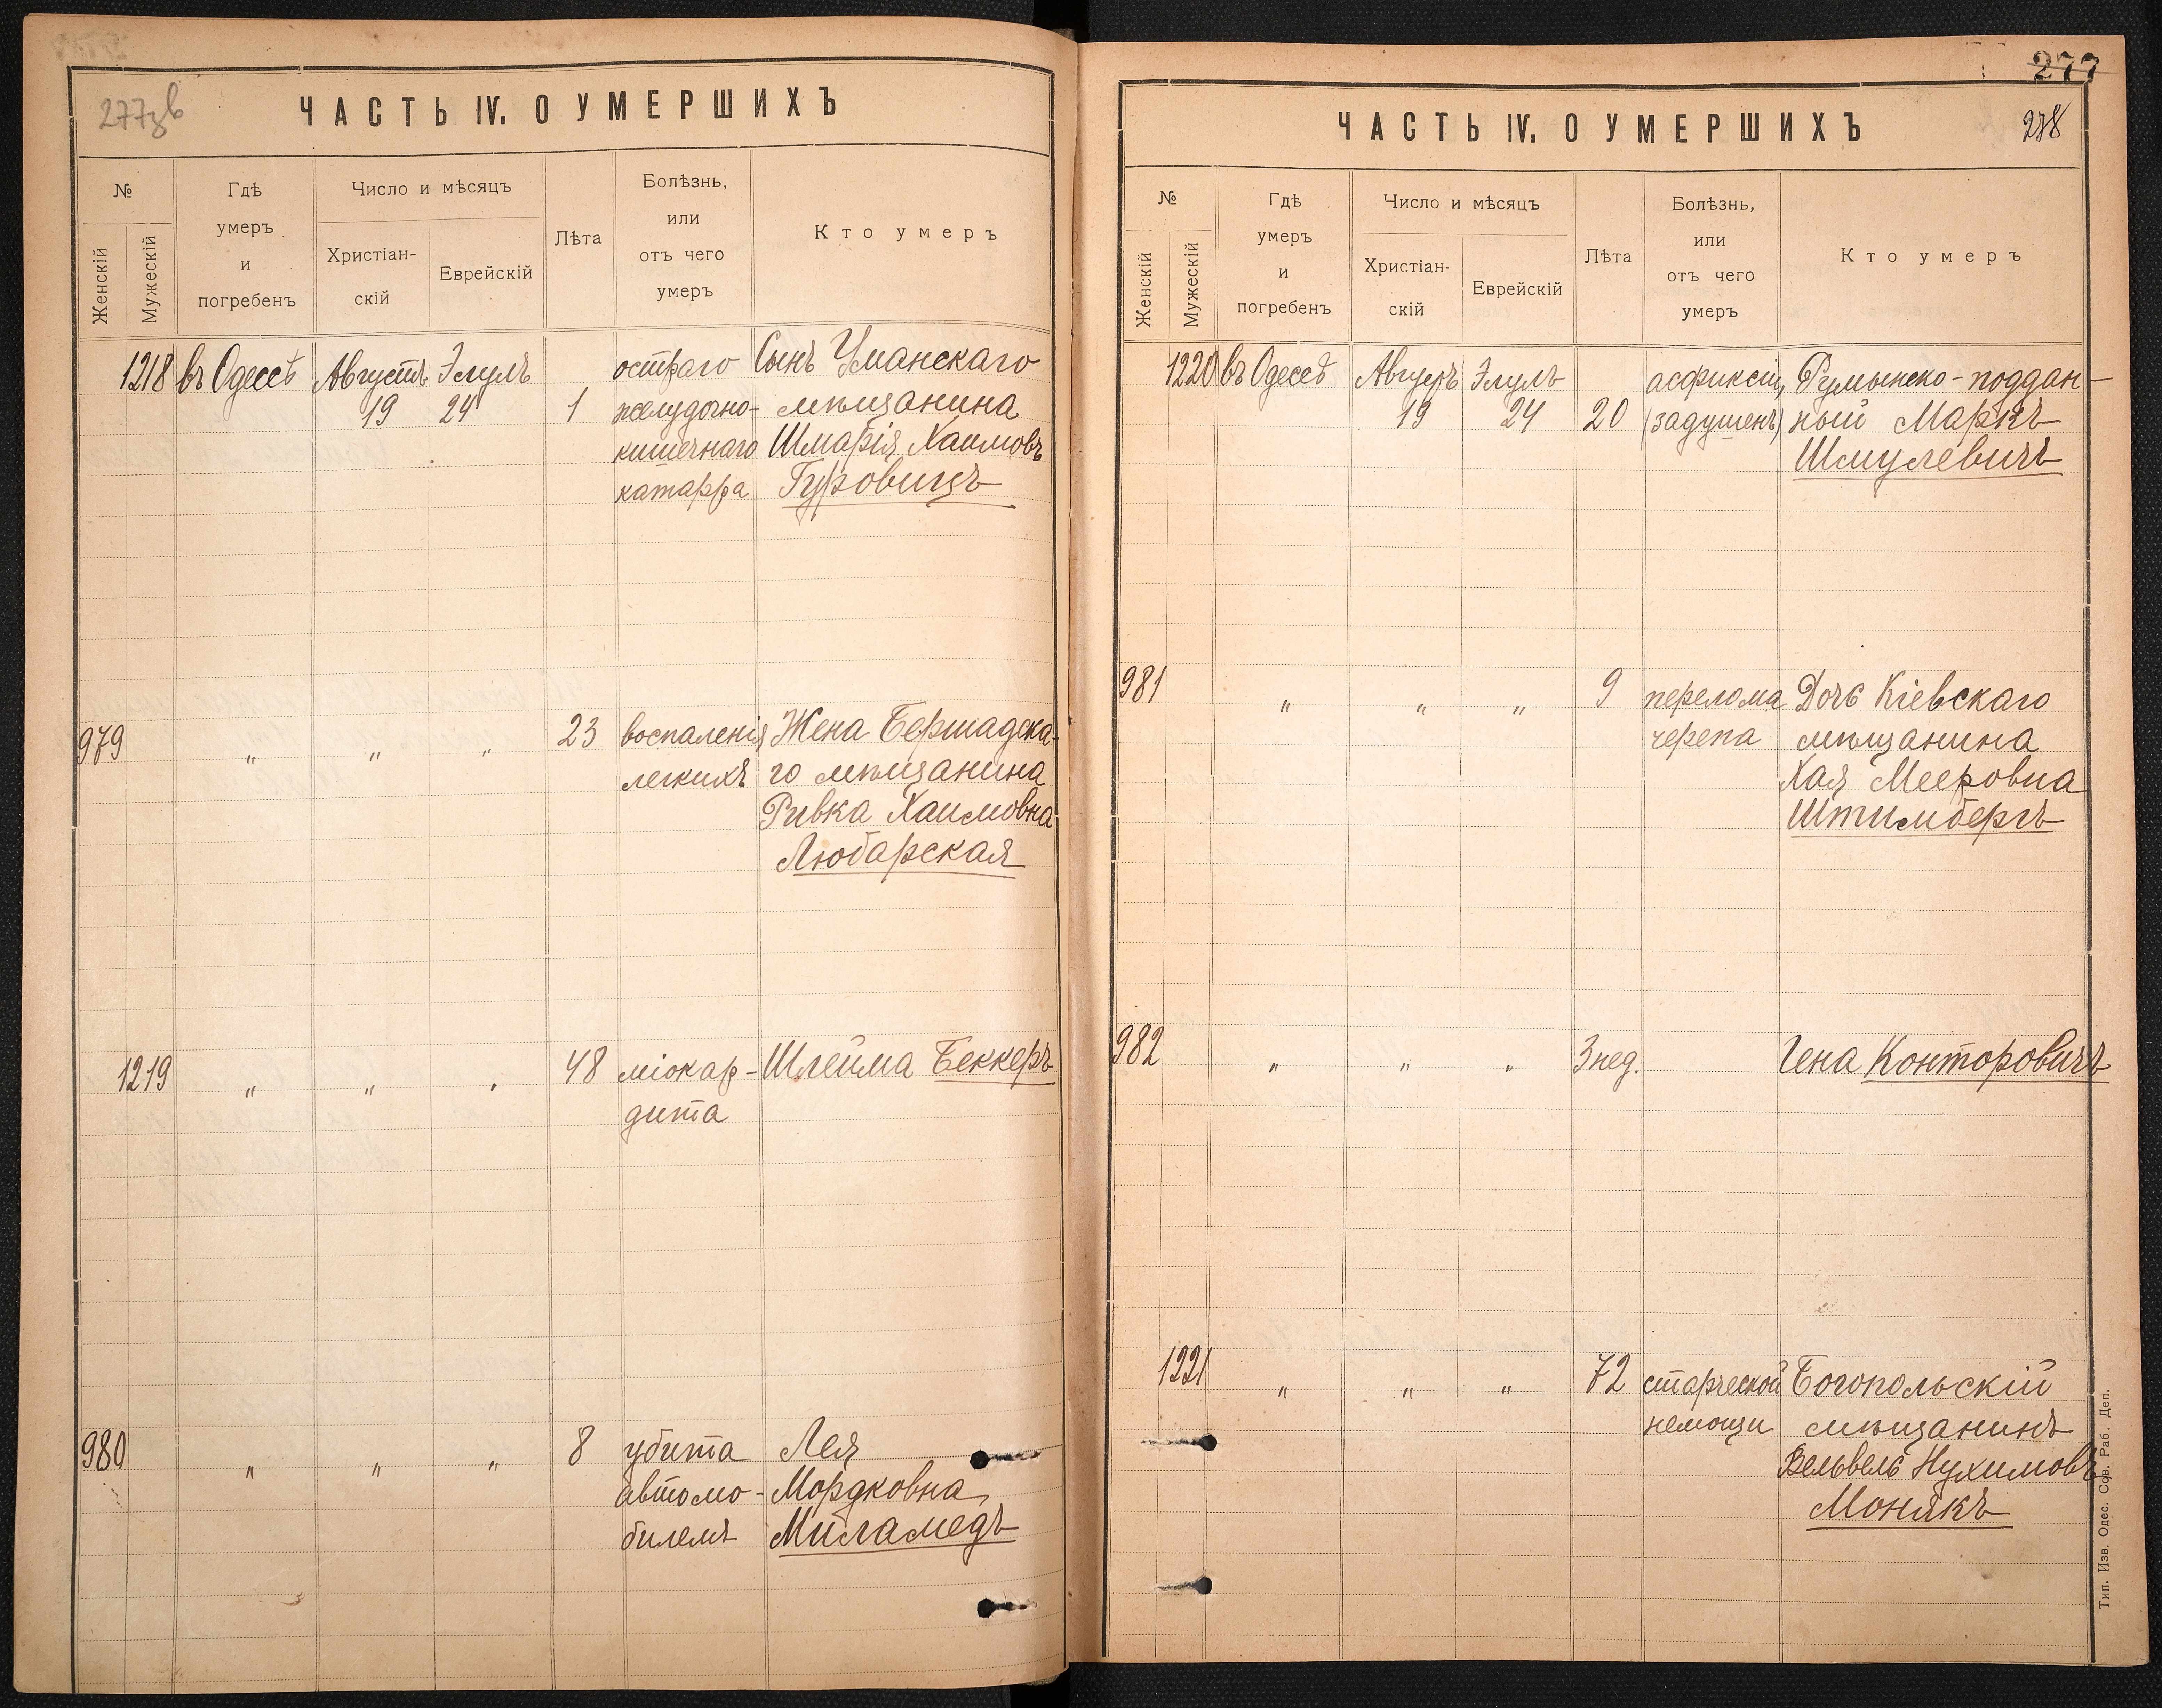 277зв
ЧАСТЬ IV. О УМЕРШИХЪ
№
Женскій
Мужескій
Гдѣ
умеръ
и
погребенъ
Число и мѣсяцъ
Христіан-
скій
Еврейскій
Лѣта
Болѣзнь,
или
отъ чего
умеръ
Кто умеръ
1218 въ Одессѣ Августъ Элулъ остраго Сынъ Уманскаго
19 24 1 желудочно- мѣщанина
кишечнаго Шмарія Хаимовъ
катарра Гуровицъ
979 " " " 23 воспаленія Жена Бершадска-
легкихъ го мѣщанина
Ривка Хаимовна
Любарская
1219 " " " 48 міокар- Шлейма Беккеръ
дита
980 " " " 8 убита Лея
автомо- Мордковна
билемъ Миламедъ
277
278
ЧАСТЬ IV. О УМЕРШИХЪ
№
Женскій
Мужескій
Гдѣ
умеръ
и
погребенъ
Число и мѣсяцъ
Христіан-
скій
Еврейскій
Лѣта
Болѣзнь,
или
отъ чего
умеръ
Кто умеръ
1220 въ Одессѣ Августъ Элулъ асфиксіи, Румынско-поддан-
19 24 20 (задушенъ) ный Маркъ
Шмулевичъ
981 " " " 9 перелома Дочь Кіевскаго
черепа мѣщанина
Хая Мееровна
Штимбергъ
982 " " " 3 нед. Гена Конторовичъ
1221 " " " 72 старческой Богопольскій
немощи мѣщанинъ
Вельвель Нухимовъ
Монякъ
Тип. Изв. Одес. Сов. Раб. Деп.